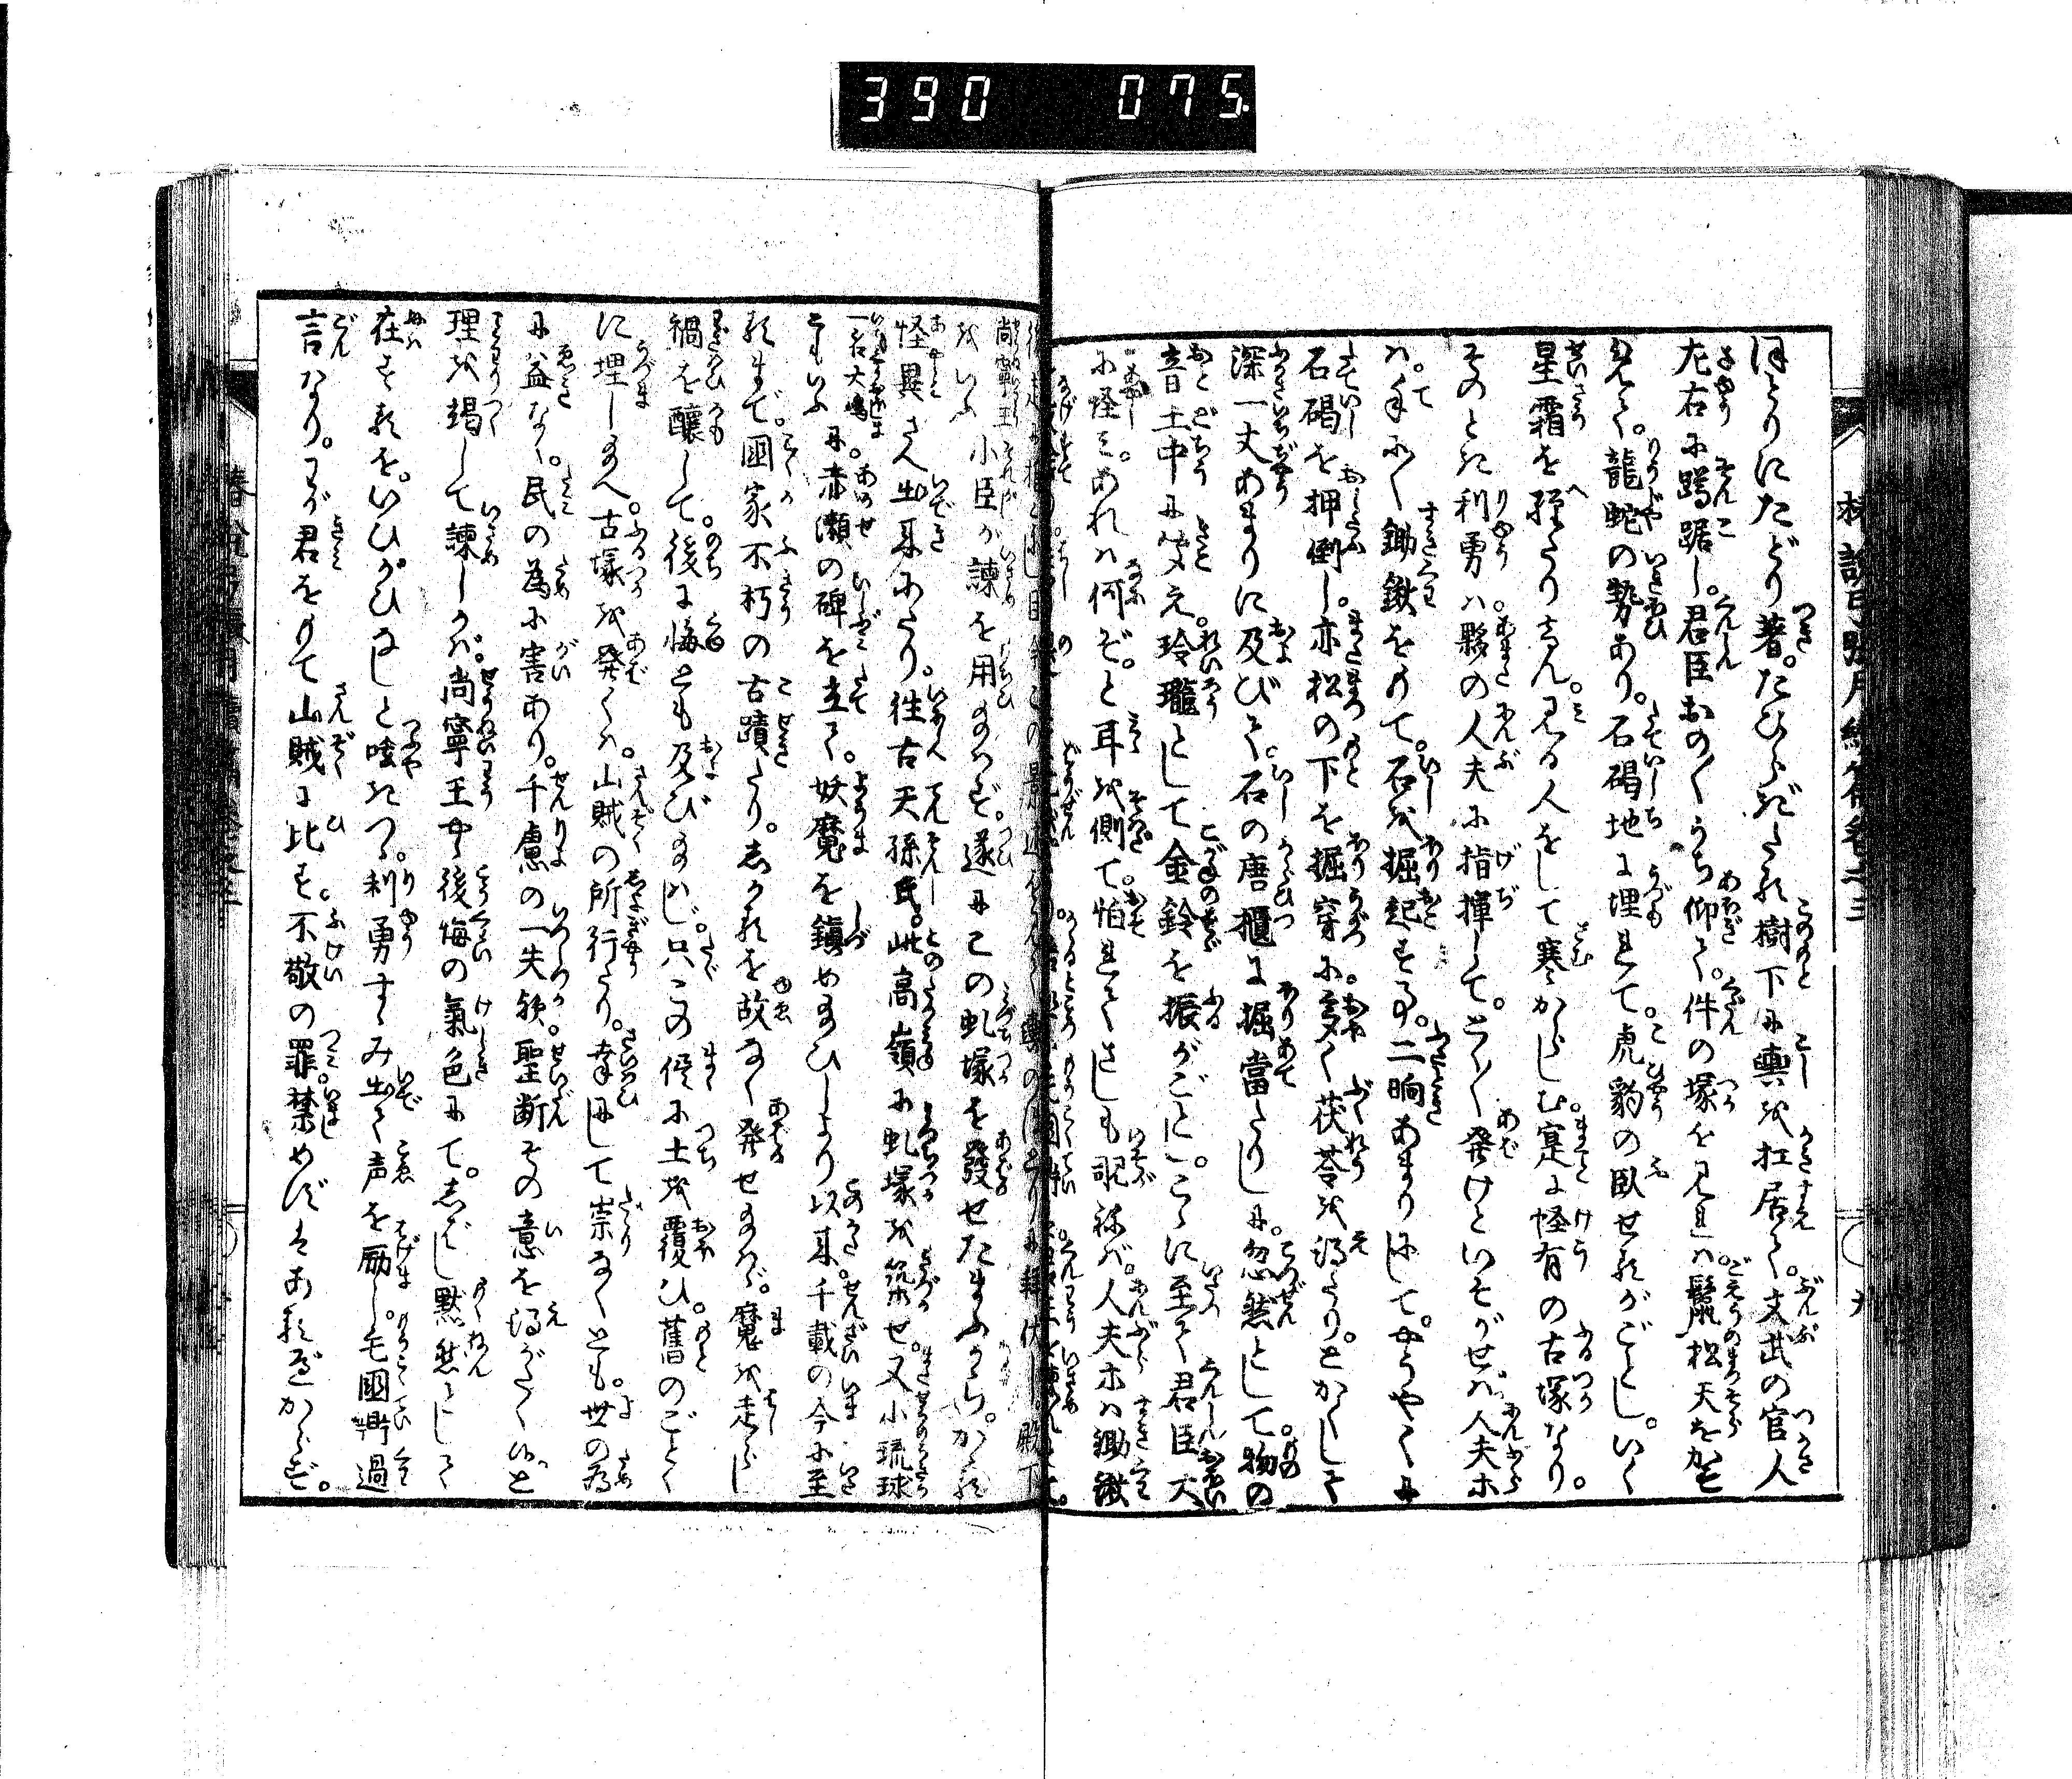 390 075
ほとりにたどり著。たひらだゝる樹下に輿を扛居て。文武の官人
左右に蹲踞し。君臣おの〱うち仰て。件の塚を見るに。鬣松天をかし
見て。龍蛇の勢あり。石碣地に埋れて。虎豹の臥せるがごとし。いく
星霜を経たりけん。見る人をして寒からしむ。寔に怪有の古塚なり。
そのとき利勇は。夥の人夫に指揮して。とく〱発けといそがせば。人夫ホ
は。手に〱鋤鍬をもて。石を掘起すに。二晌あまりにして。やうやくに
石碣を押倒し。亦松の下を掘穿に。多く茯苓を得たり。とかくして
深一丈あまりに及びて。石の唐櫃に掘當たりしに。忽然として。物の
音土中に聞え。玲瓏として金鈴を振がごとし。こゝに至て君臣大
に怪み。あれは何ぞ。と耳を側て。怕れてさしも覗ねば。人夫ホは鋤鍬
尚寧王
をいふ小臣が諫を用給はず。遂にこの虬塚を發せたまふから。かゝる
怪異さへ出来にたり。往古天孫氏。此高嶺に虬塚を築せ。又小琉球
一名大嶋
ともいふに赤瀬の碑を立て。妖魔を鎮め給ひしより以来。千載の今に至
るまで。國家不朽の古蹟たり。しかるを故なく発せ給はゞ。魔を走らし
禍を醸して。後に悔とも及び給はじ。只この侭に土を覆ひ。舊のごとく
に埋し給へ。古塚を発くは。山賊の所行たり。幸にして祟なくとも。世の為
に益なく、民の為に害あり。千慮の一失歟。聖断その意を得がたくいと
理を竭して諫しかば。尚寧王やゝ後悔の氣色にて。しばし黙然として
在するを。いひがひなしと呟きつゝ。利勇すゝみ出て声を励し。毛國鼎過
言なり。わが君をもて山賊に比す。不敬の罪禁めずはあるべからず。